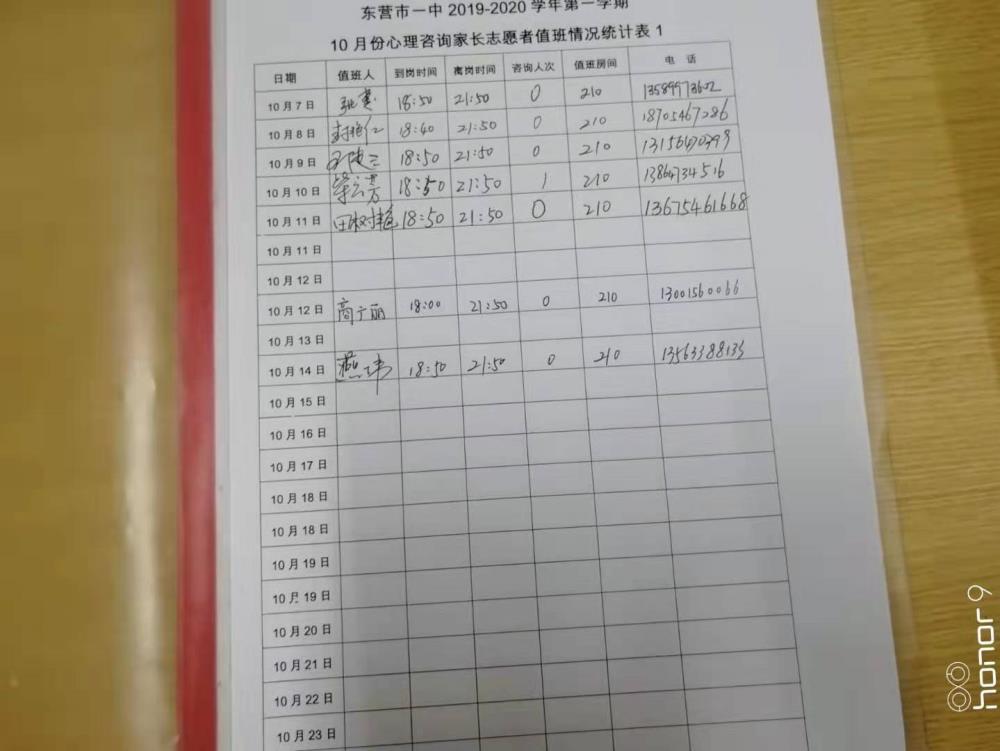 东营市一中 2019-2020 学年第一学期
10 月份心理咨询家长志愿者值班情况统计表 1
日期 值班人 到岗时间 离岗时间 咨询人次 值班房间 电 话
10 月 7 日 18:50 21:50 0 210
10 月 8 日 18:40 21:50 0 210 18705467286
10 月 9 日 18:50 21:50 0 210
10 月 10 日 18:50 21:50 1 210 13864734516
10 月 11 日 18:50 21:50 0 210 13675461668
10 月 11 日
10 月 12 日
10 月 12 日 高广丽 18:00 21:50 0 210 13001560066
10 月 13 日
10 月 14 日 燕玮 18:50 21:50 0 210 13563388133
10 月 15 日
10 月 16 日
10 月 17 日
10 月 18 日
10 月 18 日
10 月 19 日
10 月 19 日
10 月 20 日
10 月 21 日
10 月 22 日
10 月 23 日
honor 9